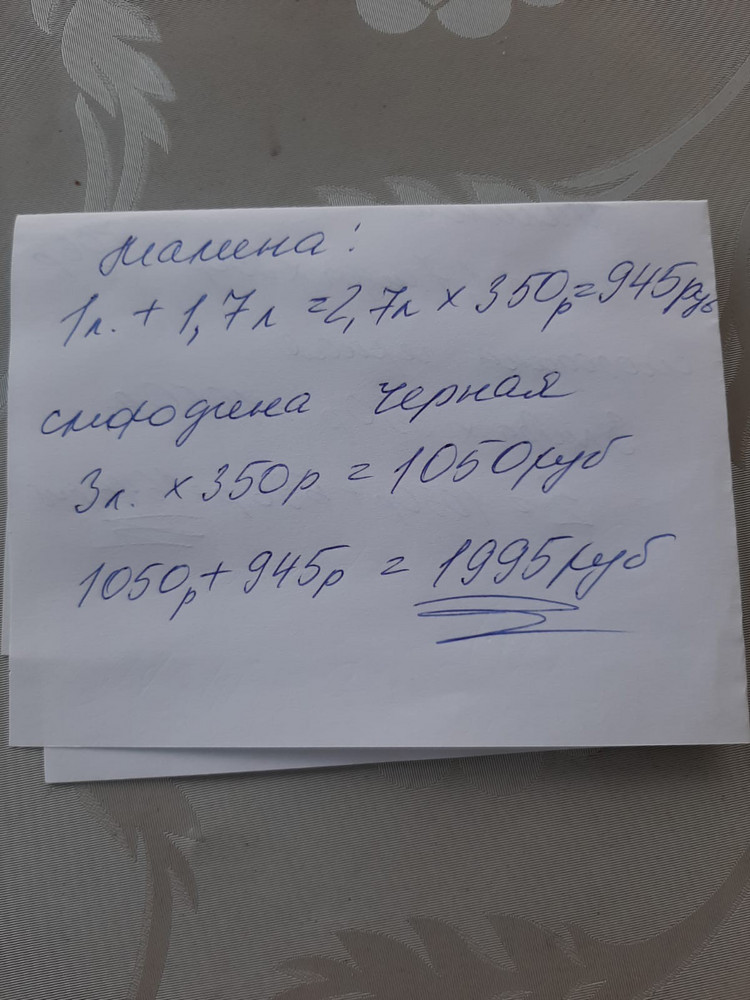 Малина:
1л. + 1,7л = 2,7л х 350р = 945руб
смородина черная
3л. х 350р = 1050руб
1050р + 945р = 1995руб